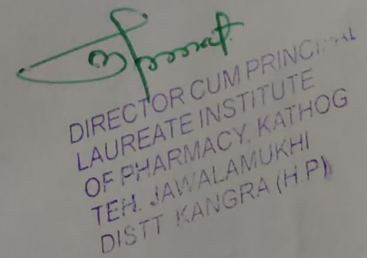 DIRECTOR CUM PRINCIPAL
LAUREATE INSTITUTE
OF PHARMACY, KATHOG
TEH. JAWALAMUKHI
DISTT KANGRA (H.P)